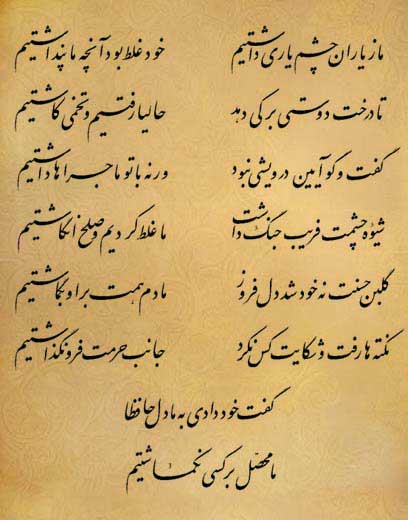 ما ز یاران چشم یاری داشتیم خود غلط بود آنچه ما پنداشتیم
تا درخت دوستی بر کی دهد حالیا رفتیم و تخمی کاشتیم
گفت و گو آیین درویشی نبود ورنه با تو ماجراها داشتیم
شیوه چشمت فریب جنگ داشت ما غلط کردیم و صلح انگاشتیم
گلبن حسنت نه خود شد دل فروز ما دم همت بر او بگماشتیم
نکته ها رفت و شکایت کس نکرد جانب حرمت فرو نگذاشتیم
گفت خود دادی به ما دل حافظا
ما محصل بر کسی نگماشتیم